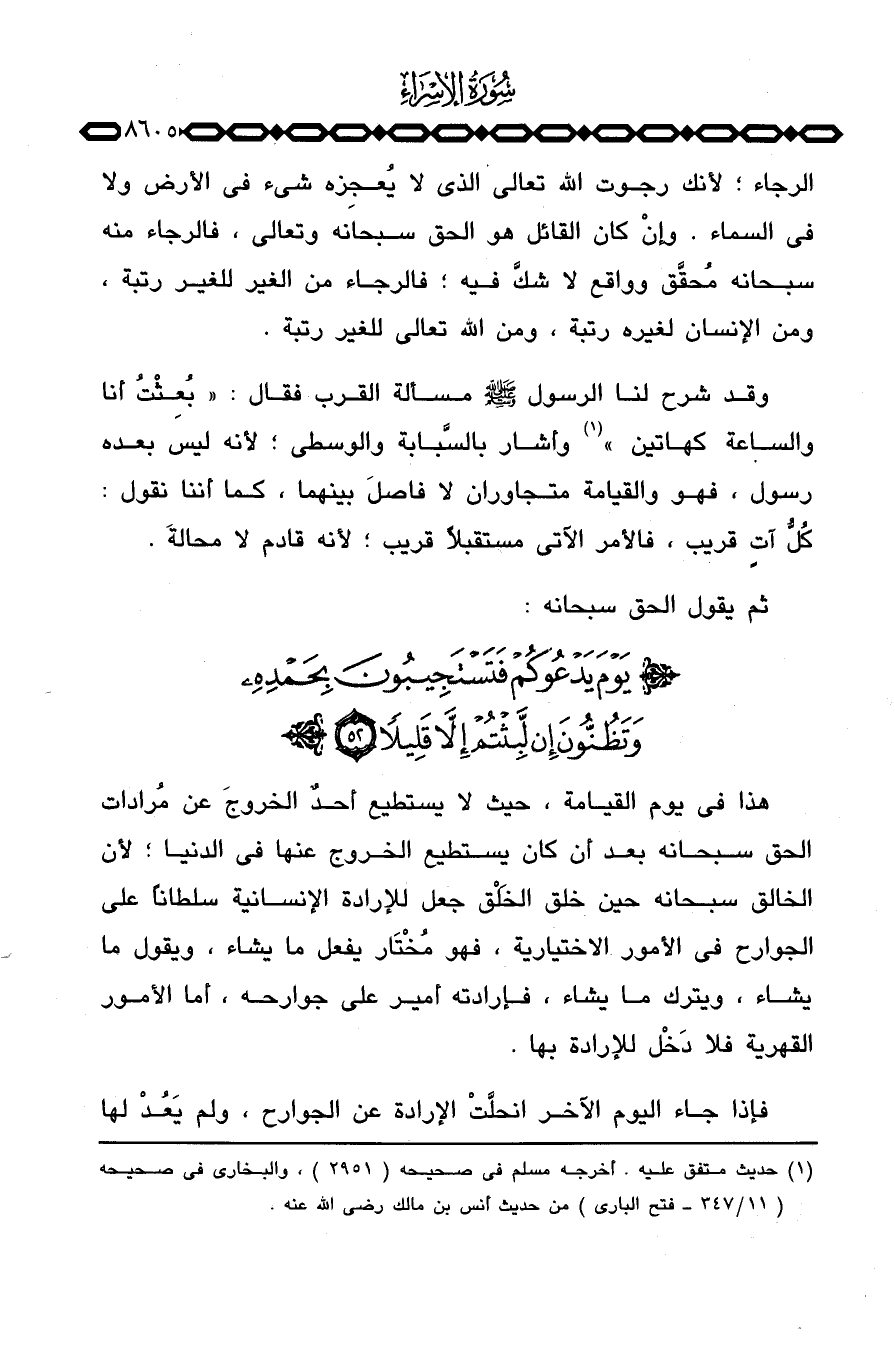 سُورَةُ الإِسْرَاءِ
٨٦٠٥
الرجاء ؛ لأنك رجوت الله تعالى الذى لا يُعجِزه شىء فى الأرض ولا
فى السماء . وإنْ كان القائل هو الحق سبحانه وتعالى ، فالرجاء منه
سبحانه مُحقَّق وواقع لا شكَّ فيه ؛ فالرجاء من الغير للغير رتبة ،
ومن الإنسان لغيره رتبة ، ومن الله تعالى للغير رتبة .
وقد شرح لنا الرسول ﷺ مسألة القرب فقال : « بُعِثْتُ أنا
والساعة كهاتين »(١) وأشار بالسَّبابة والوسطى ؛ لأنه ليس بعده
رسول ، فهو والقيامة متجاوران لا فاصلَ بينهما ، كما أننا نقول :
كُلُّ آتٍ قريب ، فالأمر الآتى مستقبلاً قريب ؛ لأنه قادم لا محالةَ .
ثم يقول الحق سبحانه :
﴿ يَوْمَ يَدْعُوكُمْ فَتَسْتَجِيبُونَ بِحَمْدِهِۦ
وَتَظُنُّونَ إِن لَّبِثْتُمْ إِلَّا قَلِيلًا ٥٢ ﴾
هذا فى يوم القيامة ، حيث لا يستطيع أحدٌ الخروجَ عن مُرادات
الحق سبحانه بعد أن كان يستطيع الخروج عنها فى الدنيا ؛ لأن
الخالق سبحانه حين خلق الخَلْق جعل للإرادة الإنسانية سلطاناً على
الجوارح فى الأمور الاختيارية ، فهو مُخْتَار يفعل ما يشاء ، ويقول ما
يشاء ، ويترك ما يشاء ، فإرادته أمير على جوارحه ، أما الأمور
القهرية فلا دَخْل للإرادة بها .
فإذا جاء اليوم الآخر انحلَّتْ الإرادة عن الجوارح ، ولم يَعُدْ لها
(١) حديث متفق عليه . أخرجه مسلم فى صحيحه ( ٢٩٥١ ) ، والبخارى فى صحيحه
( ٣٤٧/١١ - فتح البارى ) من حديث أنس بن مالك رضى الله عنه .